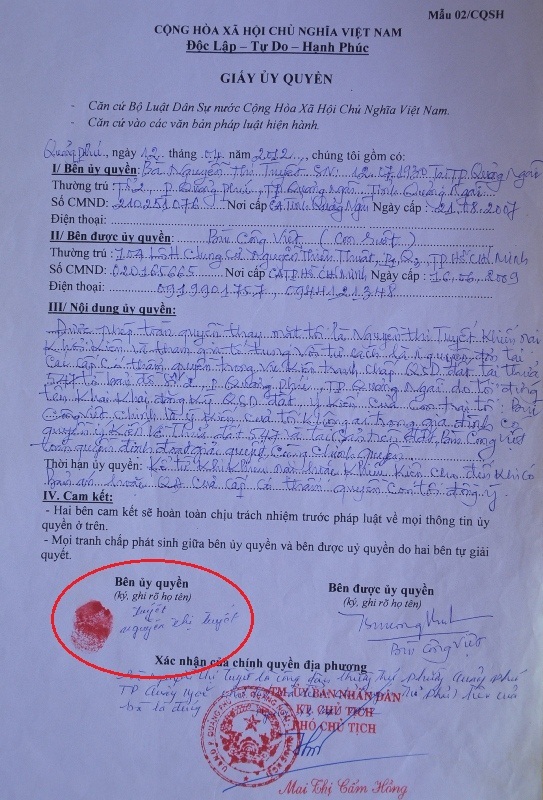 Mẫu 02/CQSH
CỘNG HÒA XÃ HỘI CHỦ NGHĨA VIỆT NAM
Độc Lập – Tự Do – Hạnh Phúc
GIẤY ỦY QUYỀN
- Căn cứ Bộ Luật Dân Sự nước Cộng Hòa Xã Hội Chủ Nghĩa Việt Nam.
- Căn cứ vào các văn bản pháp luật hiện hành.
Quảng phú, ngày 12 tháng 04 năm 2012, chúng tôi gồm có:
I/ Bên ủy quyền: Bà Nguyễn Thị Tuyết SN 12.07.1930 Tại TP Quảng Ngãi
Thường trú : Tổ 2, P Quảng phú, TP Quảng Ngãi Tỉnh Quảng Ngãi
Số CMND: 210251076 Nơi cấp CA Tỉnh Quảng Ngãi Ngày cấp : 21.8.2007
Điện thoại:
II/ Bên được ủy quyền: Bùi Công Việt (Con ruột)
Thường trú : Chung Cư Nguyễn Thiện Thuật, P1 Q3, TP. HỒ CHÍ MINH
Số CMND: 020165665 Nơi cấp CATP. HỒ CHÍ MINH Ngày cấp : 16.06.2009
Điện thoại: 0919901757, 0944121348
III/ Nội dung ủy quyền:
Được phép toàn quyền thay mặt tôi là Nguyễn thị Tuyết Khiếu nại
Khởi Kiện và tham gia tố tụng với tư cách là nguyên đơn tại
Các cấp Có thẩm quyền trong vụ Kiện tranh chấp QSD đất tại thửa
Tổ 2, P Quảng phú, TP Quảng Ngãi do tôi đứng
tên Khai đăng ký QSD đất. ý Kiến của Con trai tôi: Bùi
Công Việt chính là ý kiến của tôi không ai trong gia đình có
quyền ý kiến về thửa đất Bùi Công Việt
toàn quyền định đoạt giải quyết
Thời hạn ủy quyền: Kể từ Khi Khiếu nại Khiếu Kiện cho đến Khi có
Bản án của cấp có thẩm quyền Con tôi đồng ý
IV. Cam kết:
- Hai bên cam kết sẽ hoàn toàn chịu trách nhiệm trước pháp luật về mọi thông tin ủy
quyền ở trên.
- Mọi tranh chấp phát sinh giữa bên ủy quyền và bên được uỷ quyền do hai bên tự giải
quyết.
Bên ủy quyền
(ký, ghi rõ họ tên)
Tuyết
Nguyễn Thị Tuyết
Bên được ủy quyền
(ký, ghi rõ họ tên)
Bùi Công Việt
Xác nhận của chính quyền địa phương
Bà Nguyễn Thị Tuyết là công dân thường trú phường Quảng Phú
TP Quảng Ngãi
bà là đúng
TM. ỦY BAN NHÂN DÂN
KT. CHỦ TỊCH
PHÓ CHỦ TỊCH
Mai Thị Cẩm Hồng